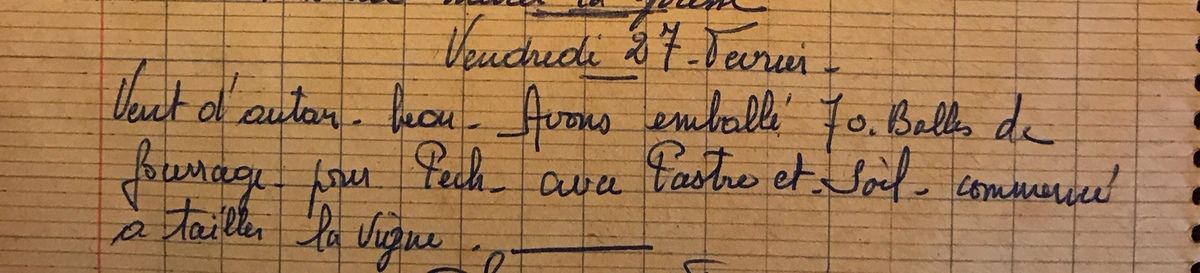 Vendredi 27 - Fevrier -
Vent d'autan - beau - Avons emballé 70. Balles de
fourrage - pour Pech - avec Pastre et - - commencé
a tailler la vigne.